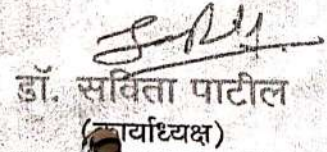 डॉ. सविता पाटील
(कार्याध्यक्ष)